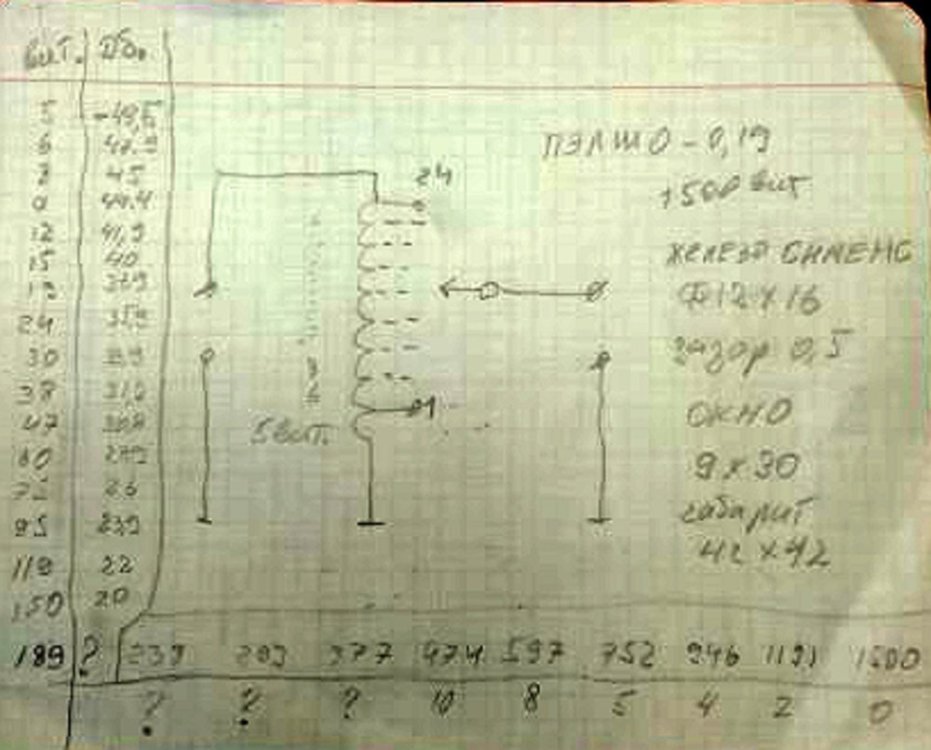 вит. дб.
5 -49,5
6 47.9
7 45
9 44.4
12 41,9
15 40
24
30
38
47
60
75 26
95 23,9
119 22
150 20
189 ? 239 377 474 597 752 946 1191 1500
? ? ? 10 8 5 4 2 0
24
1
5 вит.
ПЭЛШО - 0,19
1500 вит
железо СИМЕНС
Ф12 х 16
зазор 0,5
ОКНО
9 х 30
габарит
42 х 42